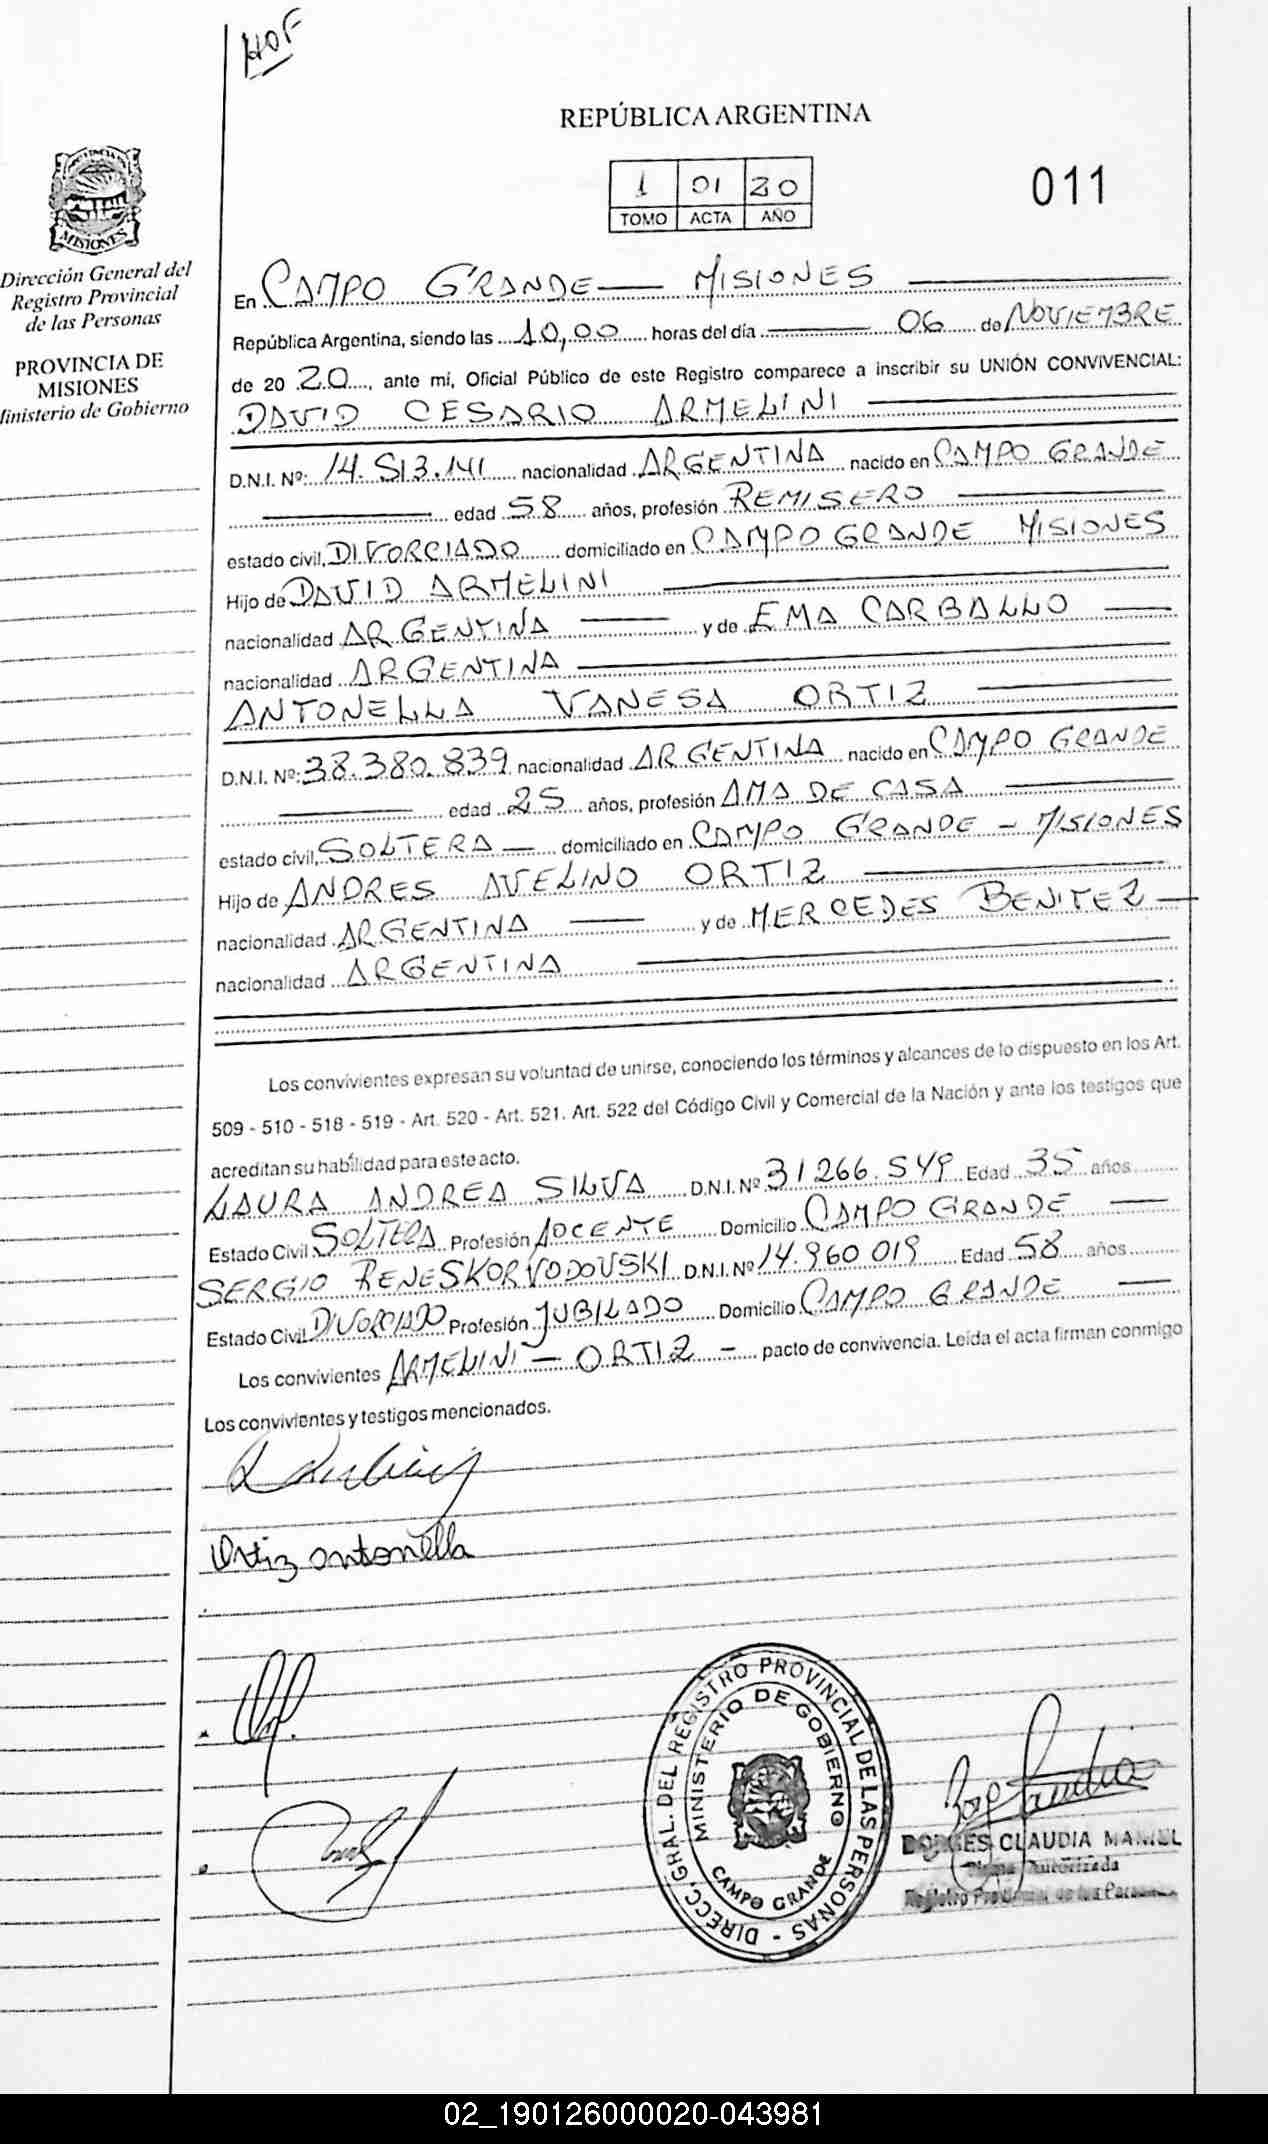 HOF
REPÚBLICA ARGENTINA
1 01 20
TOMO ACTA AÑO
011
MISIONES
Dirección General del
Registro Provincial
de las Personas
PROVINCIA DE
MISIONES
Ministerio de Gobierno
En CAMPO GRANDE — MISIONES
República Argentina, siendo las 10,00 horas del día 06 de NOVIEMBRE
de 20 20, ante mi, Oficial Público de este Registro comparece a inscribir su UNIÓN CONVIVENCIAL:
DAVID CESARIO ARMELINI
D.N.I. Nº: 14.513.141 nacionalidad ARGENTINA nacido en CAMPO GRANDE
edad 58 años, profesión REMISERO
estado civil, DIVORCIADO domiciliado en CAMPO GRANDE MISIONES
Hijo de DAVID ARMELINI
nacionalidad ARGENTINA y de EMA CARBALLO
nacionalidad ARGENTINA
ANTONELLA VANESA ORTIZ
D.N.I. Nº: 38.380.839 nacionalidad ARGENTINA nacido en CAMPO GRANDE
edad 25 años, profesión AMA DE CASA
estado civil, SOLTERA — domiciliado en CAMPO GRANDE - MISIONES
Hijo de ANDRES AVELINO ORTIZ
nacionalidad ARGENTINA y de MERCEDES BENITEZ
nacionalidad ARGENTINA
Los convivientes expresan su voluntad de unirse, conociendo los términos y alcances de lo dispuesto en los Art.
509 - 510 - 518 - 519 - Art. 520 - Art. 521. Art. 522 del Código Civil y Comercial de la Nación y ante los testigos que
acreditan su habilidad para este acto.
LAURA ANDREA SILVA D.N.I. Nº 31266.549 Edad 35 años
Estado Civil SOLTERA Profesión DOCENTE Domicilio CAMPO GRANDE
SERGIO RENE SKORVODOVSKI D.N.I. Nº 14.960 019 Edad 58 años
Estado Civil DIVORCIADO Profesión JUBILADO Domicilio CAMPO GRANDE
Los convivientes ARMELINI — ORTIZ - pacto de convivencia. Leída el acta firman conmigo
Los convivientes y testigos mencionados.
Ortiz antonella
DIRECC. GRAL. DEL REGISTRO PROVINCIAL DE LAS PERSONAS -
MINISTERIO DE GOBIERNO
CAMPO GRANDE
BORGES CLAUDIA
Firma Autorizada
Registro Provincial de las Personas
02_190126000020-043981